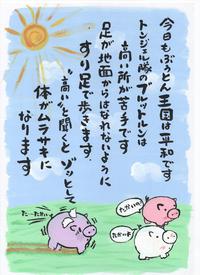 今日もぶうとん王国は平和です
トンジェル隊のブルットレンは
高い所が苦手です
足が地面からはなれないように
すり足で歩きます
"高い"と聞くと ゾッとして
体がムラサキに
なります
たかいの
たかいよ
た…たかい